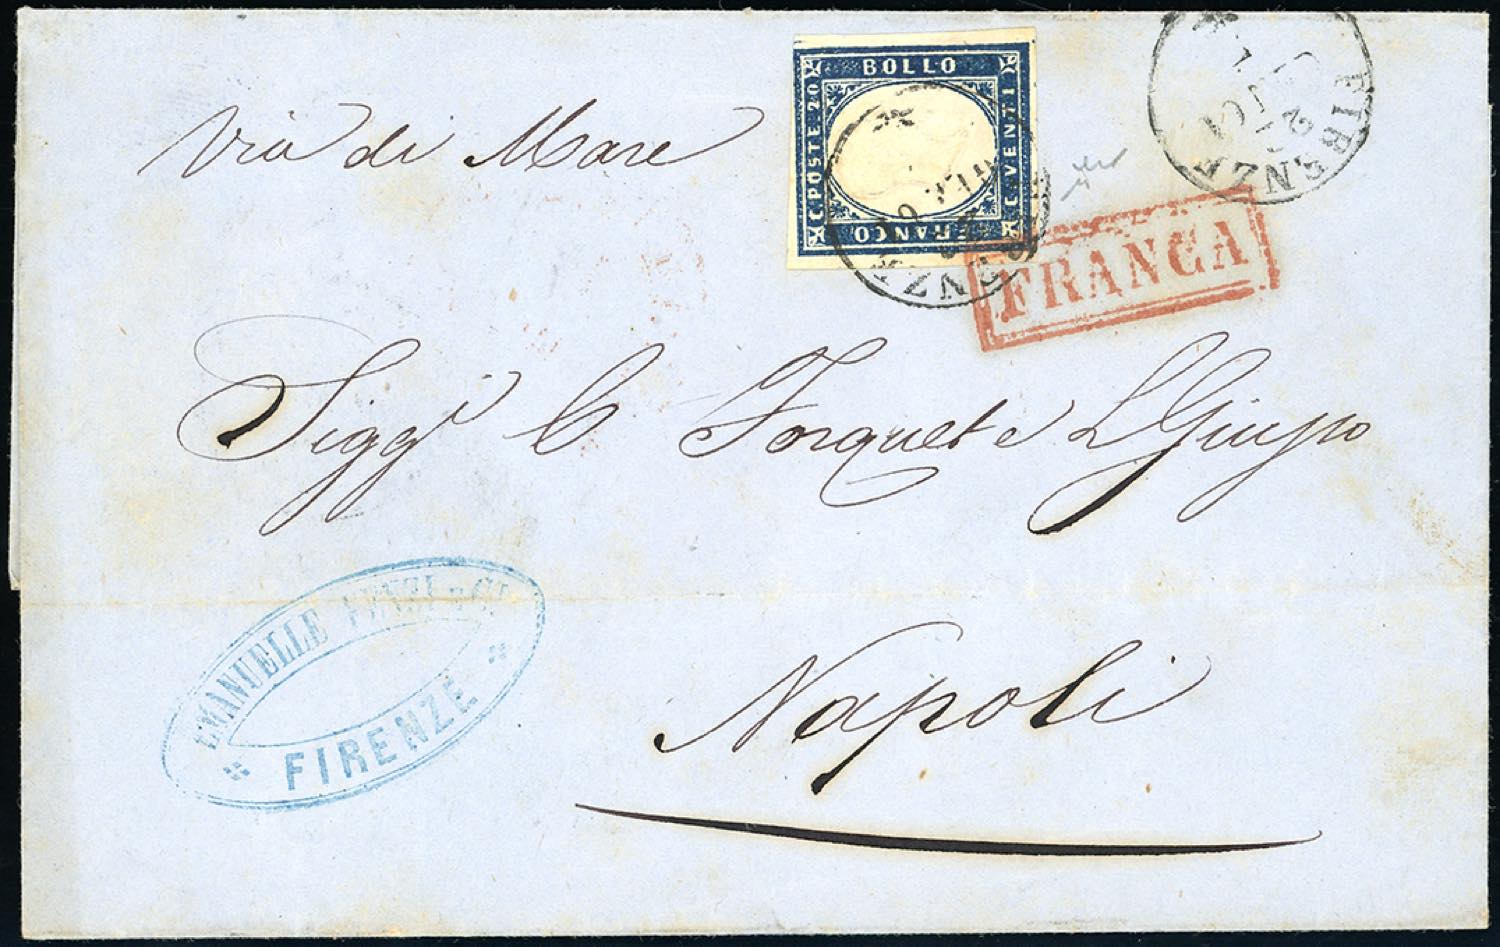 Via di Mare
BOLLO
C. POSTE 20
C. VENTI
FRANCO
FIRENZE
FRANCA
Sigg.i C Forquet e L Giusso
EMANUELLE FENZI e C.
FIRENZE
Napoli